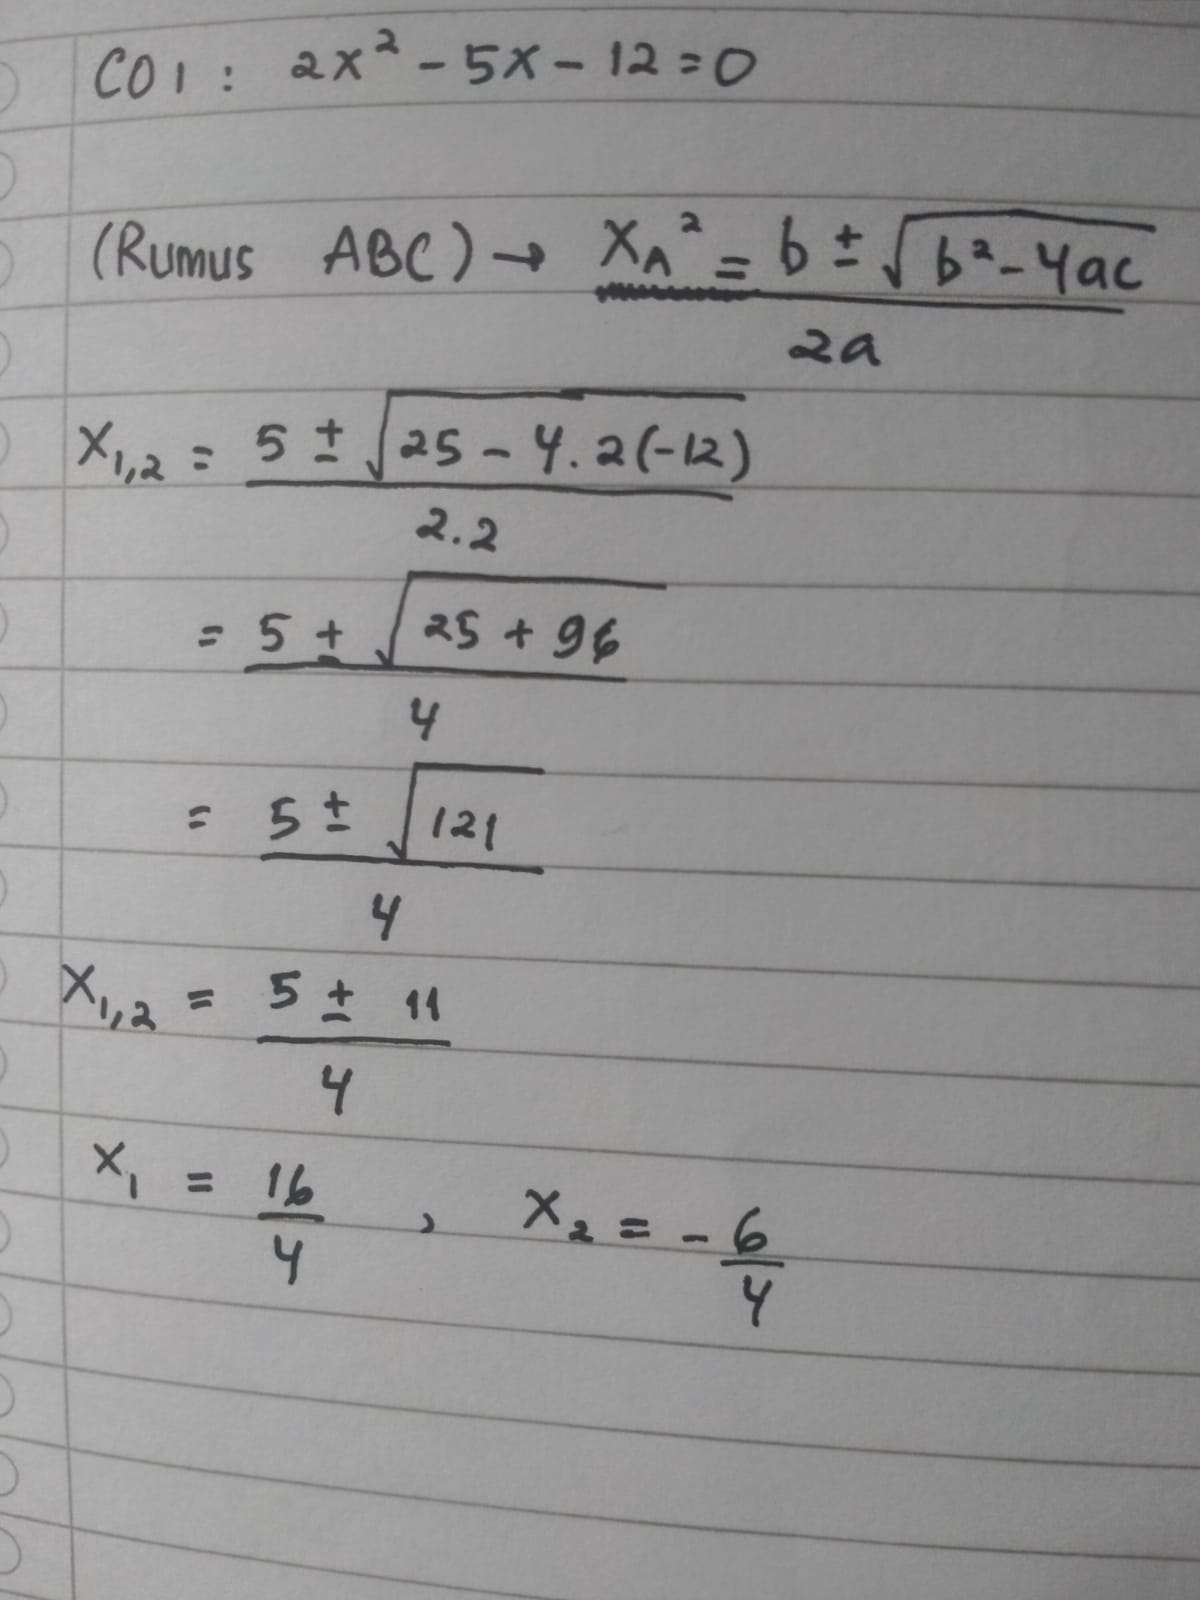 CO 1 : 2x² - 5x - 12 = 0
(Rumus ABC) → X_A² = b ± √(b² - 4ac)
2a
X₁,₂ = 5 ± √(25 - 4.2(-12))
2.2
= 5 ± √(25 + 96)
4
= 5 ± √121
4
X₁,₂ = 5 ± 11
4
X₁ = 16/4 , X₂ = - 6/4